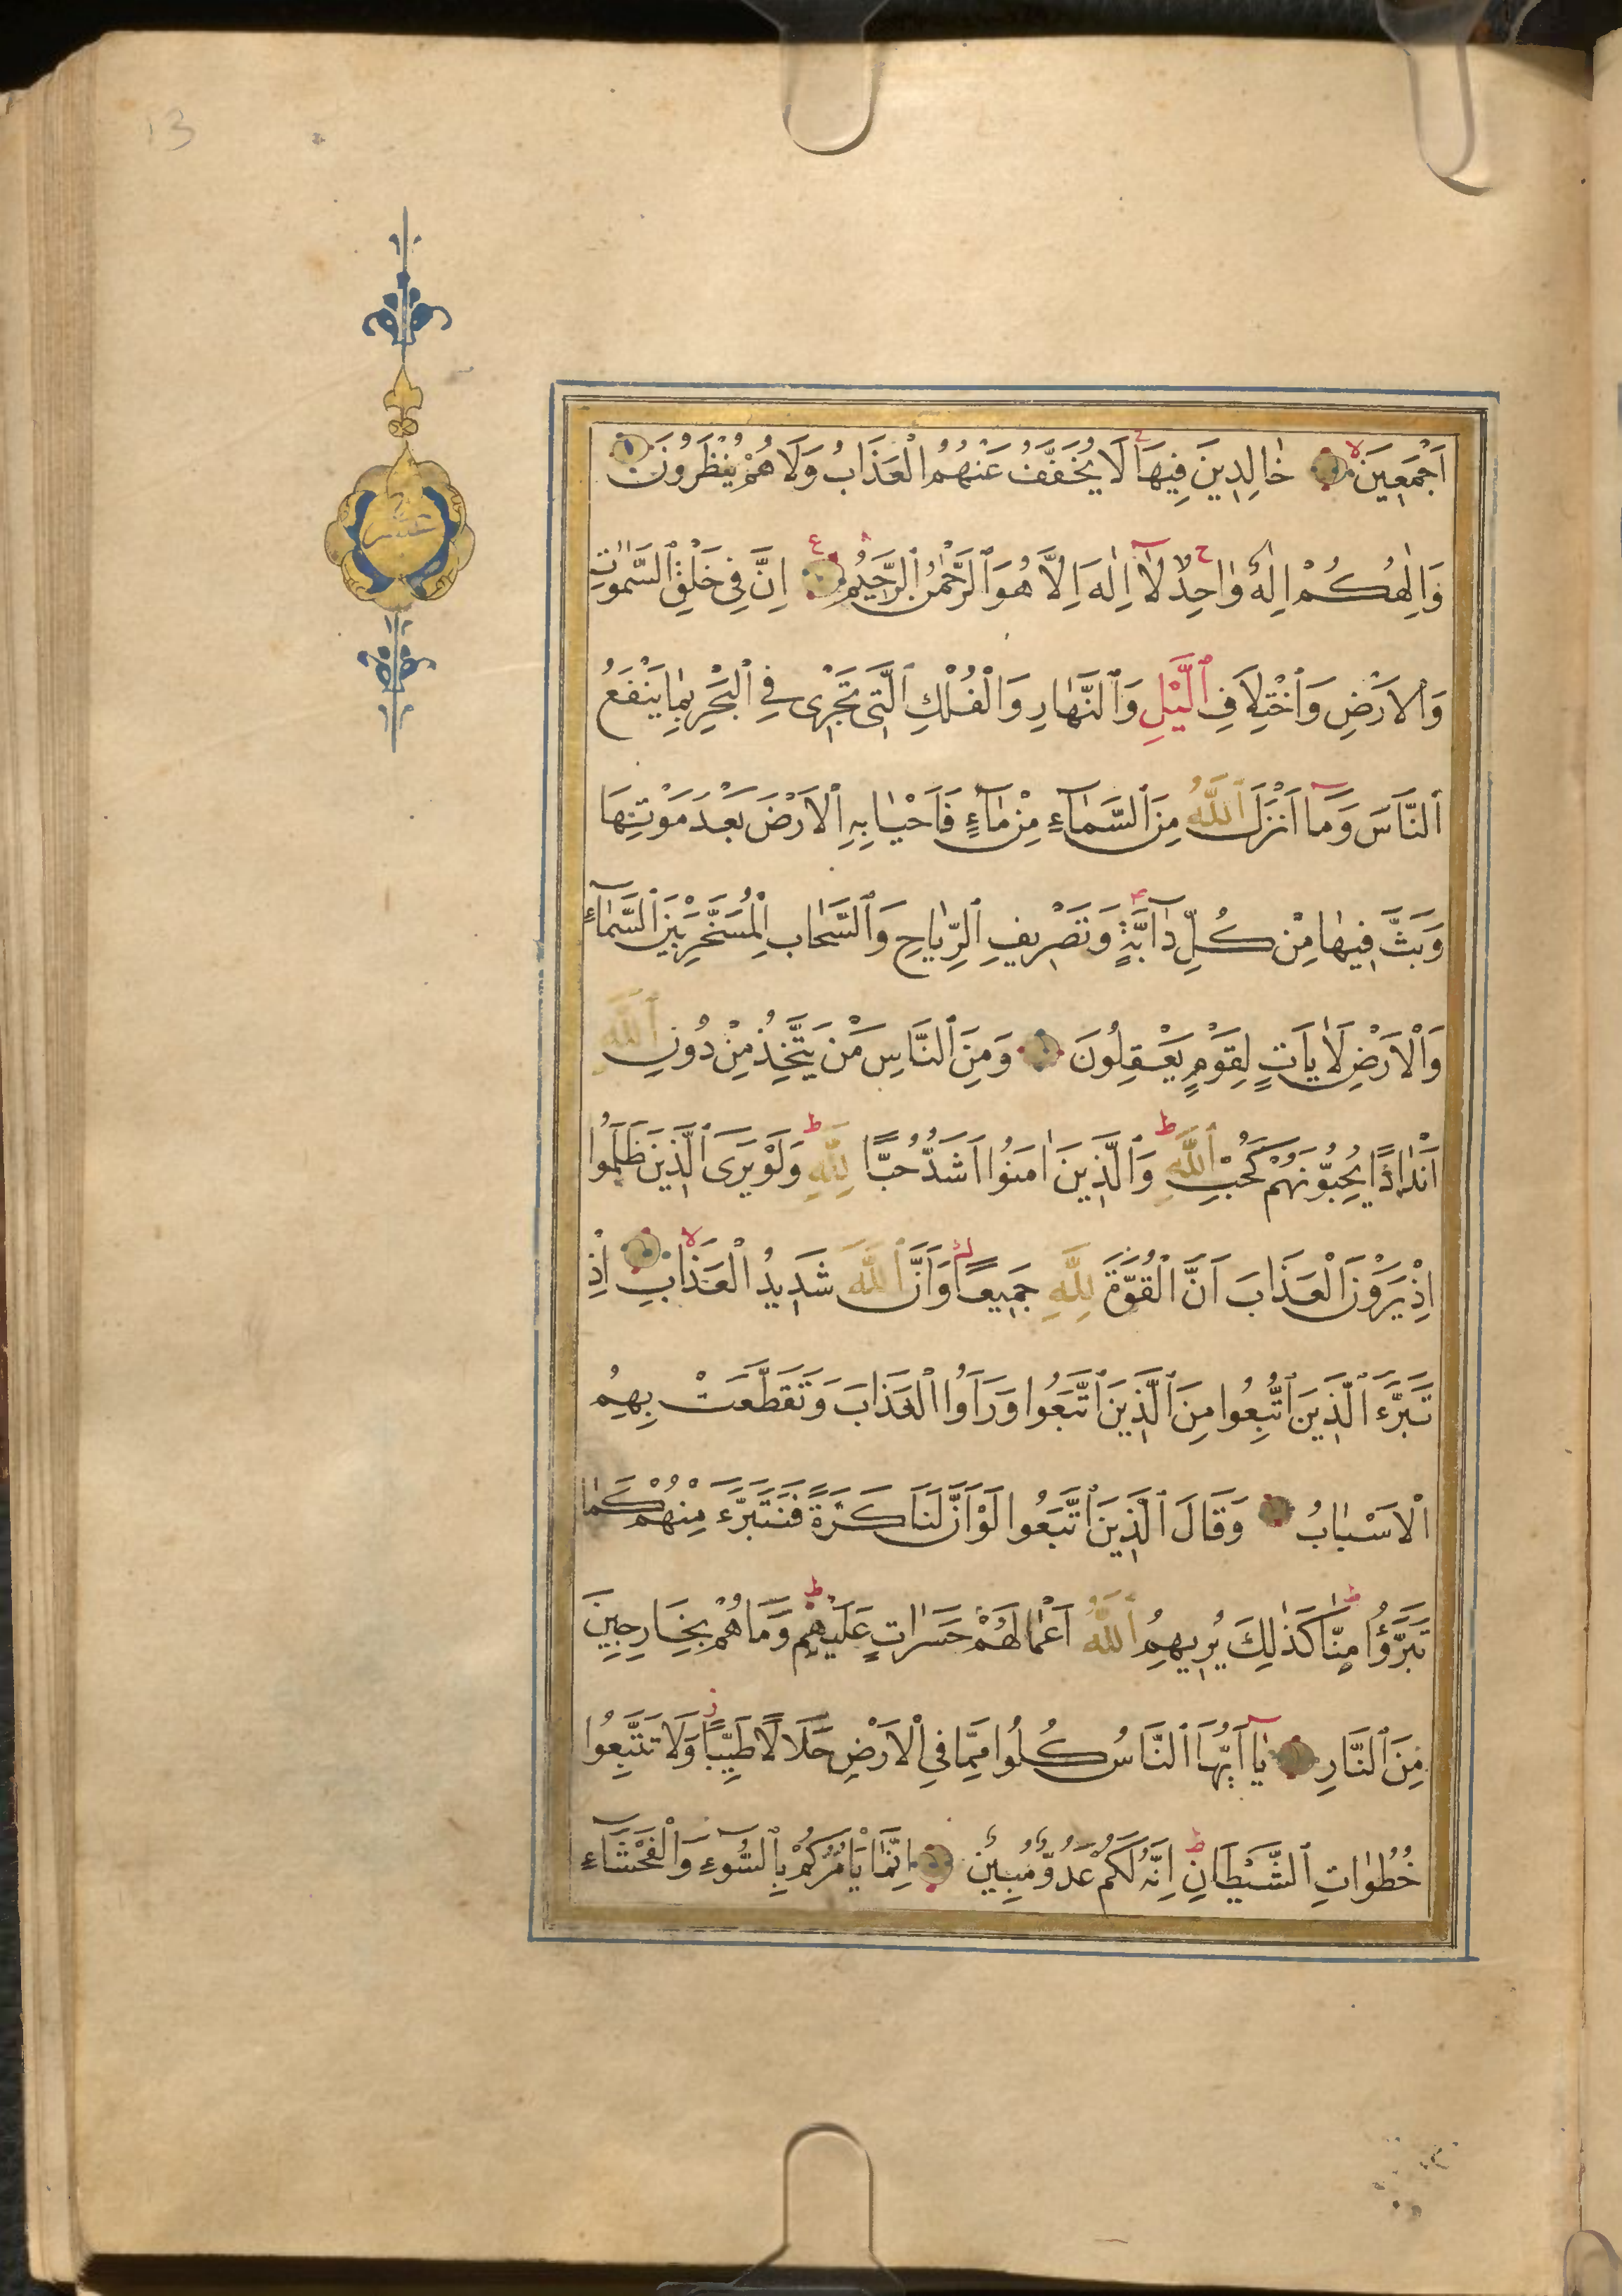 13
اَجْمَعِينَ لا خَالِدِينَ فِيهَا ج لَا يُخَفَّفُ عَنْهُمُ الْعَذَابُ وَلَا هُمْ يُنْظَرُونَ
وَاِلٰهُكُمْ اِلٰهٌ وَاحِدٌ ج لَآ اِلٰهَ اِلَّا هُوَ ٱلرَّحْمٰنُ ٱلرَّحِيمُ ع اِنَّ فِى خَلْقِ ٱلسَّمٰوَاتِ
وَٱلْاَرْضِ وَٱخْتِلَافِ ٱلَّيْلِ وَٱلنَّهَارِ وَالْفُلْكِ ٱلَّتِى تَجْرِى فِي ٱلْبَحْرِ بِمَا يَنْفَعُ
ٱلنَّاسَ وَمَآ اَنْزَلَ ٱللَّهُ مِنَ ٱلسَّمَآءِ مِنْ مَآءٍ فَاَحْيَا بِهِ ٱلْاَرْضَ بَعْدَ مَوْتِهَا
وَبَثَّ فِيهَا مِنْ كُلِّ دَآبَّةٍ وَتَصْرِيفِ ٱلرِّيَاحِ وَٱلسَّحَابِ ٱلْمُسَخَّرِ بَيْنَ ٱلسَّمَآءِ
وَالْاَرْضِ لَاٰيَاتٍ لِقَوْمٍ يَعْقِلُونَ وَمِنَ ٱلنَّاسِ مَنْ يَتَّخِذُ مِنْ دُونِ ٱللَّهِ
اَنْدَادًا يُحِبُّونَهُمْ كَحُبِّ ٱللَّهِ ط وَٱلَّذِينَ اٰمَنُوا اَشَدُّ حُبًّا لِلَّهِ ط وَلَوْ يَرَى ٱلَّذِينَ ظَلَمُوا
اِذْ يَرَوْنَ الْعَذَابَ اَنَّ الْقُوَّةَ لِلَّهِ جَمِيعًا وَاَنَّ ٱللَّهَ شَدِيدُ الْعَذَابِ لا اِذْ
تَبَرَّءَ ٱلَّذِينَ ٱتُّبِعُوا مِنَ ٱلَّذِينَ ٱتَّبَعُوا وَرَاَوُا الْعَذَابَ وَتَقَطَّعَتْ بِهِمُ
ٱلْاَسْبَابُ وَقَالَ ٱلَّذِينَ ٱتَّبَعُوا لَوْ اَنَّ لَنَا كَرَّةً فَنَتَبَرَّءَ مِنْهُمْ كَمَا
تَبَرَّؤُا مِنَّا ط كَذٰلِكَ يُرِيهِمُ ٱللَّهُ اَعْمَالَهُمْ حَسَرَاتٍ عَلَيْهِمْ ط وَمَا هُمْ بِخَارِجِينَ
مِنَ ٱلنَّارِ يَآ اَيُّهَا ٱلنَّاسُ كُلُوا مِمَّا فِي ٱلْاَرْضِ حَلَالًا طَيِّبًا ز وَلَا تَتَّبِعُوا
خُطُوَاتِ ٱلشَّيْطَانِ ط اِنَّهُ لَكُمْ عَدُوٌّ مُبِينٌ اِنَّمَا يَاْمُرُكُمْ بِٱلسُّوءِ وَٱلْفَحْشَآءِ